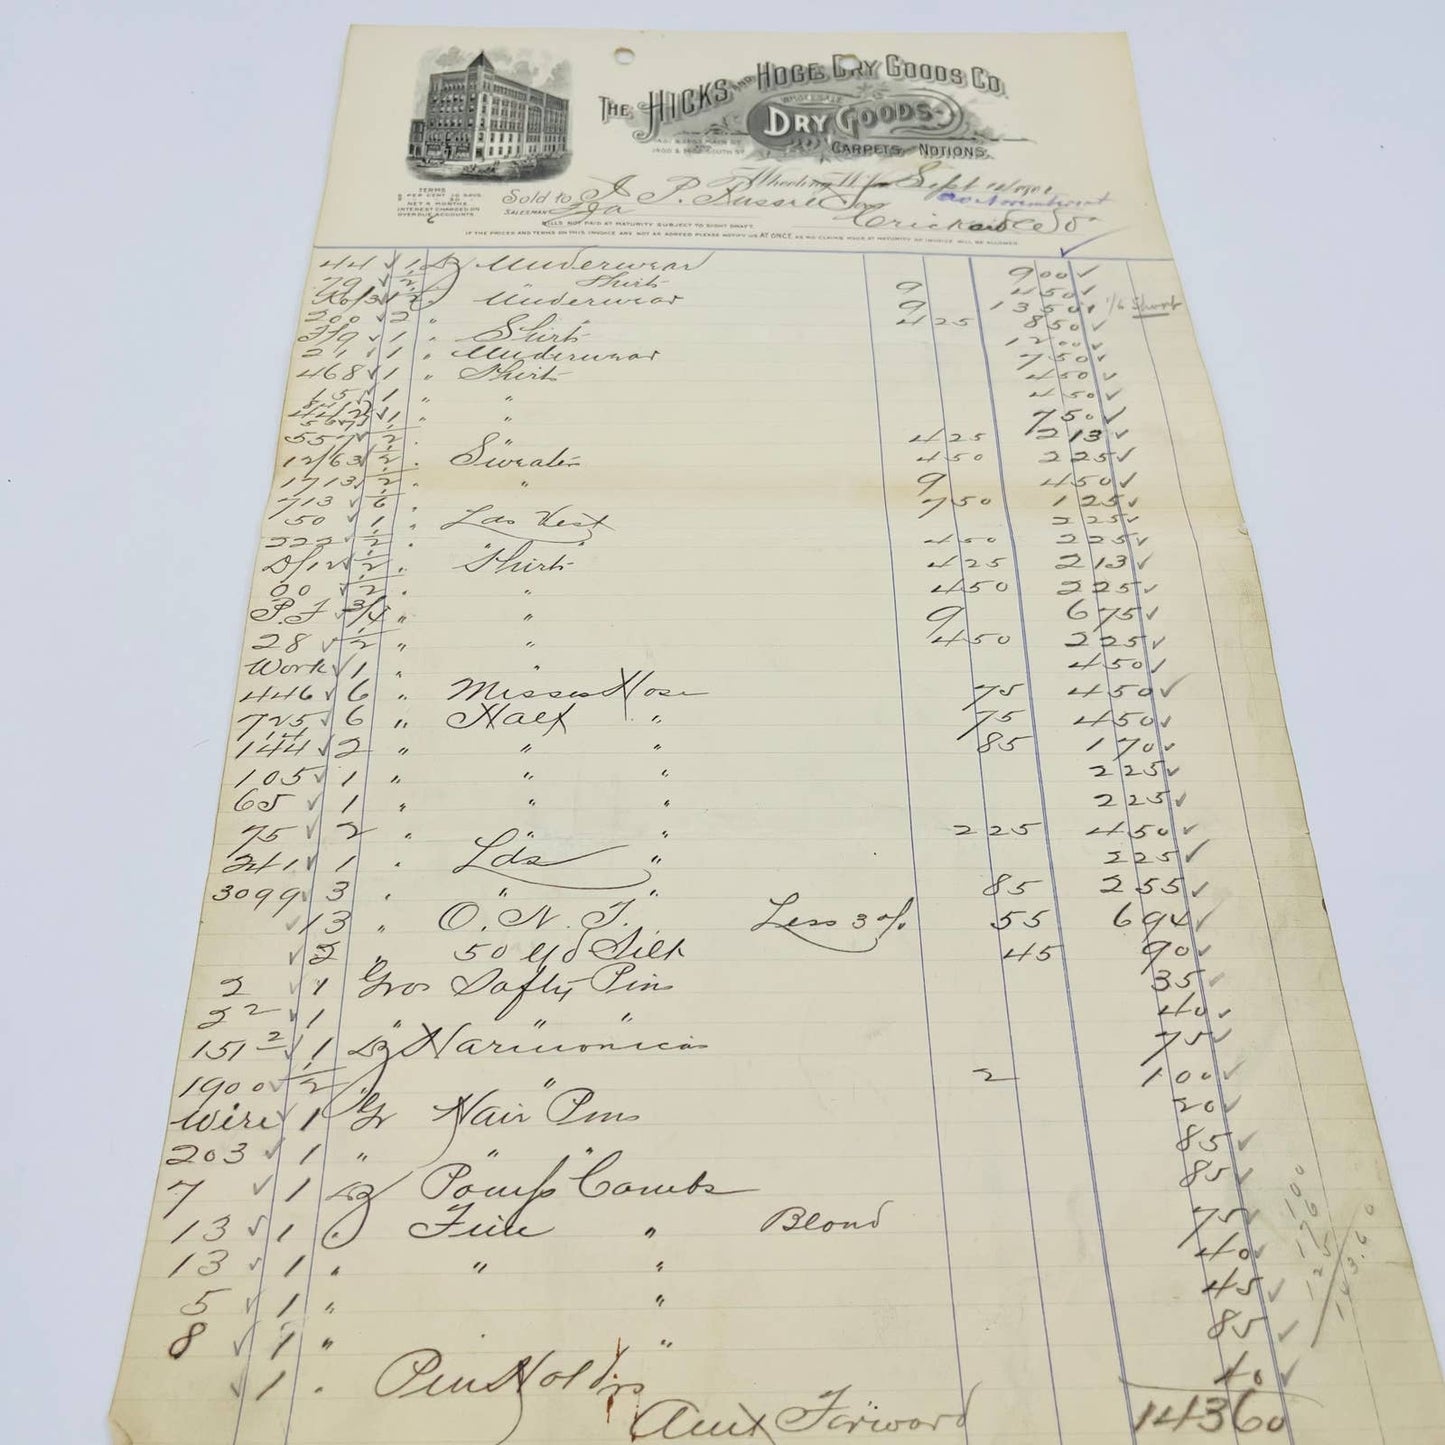 THE HICKS AND HOGE DRY GOODS CO.
WHOLESALE
DRY GOODS
CARPETS AND NOTIONS.
TERMS
NET 4 MONTHS
INTEREST CHARGED ON
OVERDUE ACCOUNTS
Wheeling W. Sept
Sold to P.
SALESMAN
BILLS NOT PAID AT MATURITY SUBJECT TO SIGHT DRAFT.
IF THE PRICES AND TERMS ON THIS INVOICE ARE NOT AS AGREED PLEASE NOTIFY US AT ONCE AS NO CLAIMS MADE AT MATURITY OF INVOICE WILL BE ALLOWED
44 1 Dz Underwear 9 00
79 1/2 " Shirts 9 4 50
1 1/2 " Underwear 9 13 50 1/6 Short
200 2 " " 4 25 8 50
319 1 " Shirts 12 00
21 1 " Underwear 7 50
468 1 " Shirts 4 50
15 1 " " 4 50
1 " " 7 50
557 1/2 " " 4 25 2 13
12/63 1/2 " Sweaters 4 50 2 25
1713 1/2 " " 9 4 50
713 1/6 " " 7 50 1 25
50 1 " Lds Vest 2 25
222 1/2 " " " 4 50 2 25
D/12 1/2 " Shirts 4 25 2 13
00 1/2 " " 4 50 2 25
P.F 3/4 " " 9 6 75
28 1/2 " " 4 50 2 25
Work 1 " " 4 50
446 6 " Misses Hose 75 4 50
725 6 " Half " 75 4 50
144 2 " " " 85 1 70
105 1 " " " 2 25
65 1 " " " 2 25
75 2 " " " 2 25 4 50
241 1 " Lds " 2 25
3099 3 " " " 85 2 55
13 " O. N. T. Less 3 % 55 6 94
2 " 50 yd Silk 45 90
2 1 Gros Safty Pins 35
2 2 1 " " " 40
151 2 1 Dz Harmonicas 75
1900 1/2 " " 2 1 00
Wire 1 Gr Hair Pins 20
203 1 " " " 85
7 1 Dz Pomp Combs 85
13 1 " Fine " Blond 75
13 1 " " " 40
5 1 " " 45
8 1 " " 85
1 " Pin Holdrs 40
Amt Forward 143 60
100
176
125
143.60